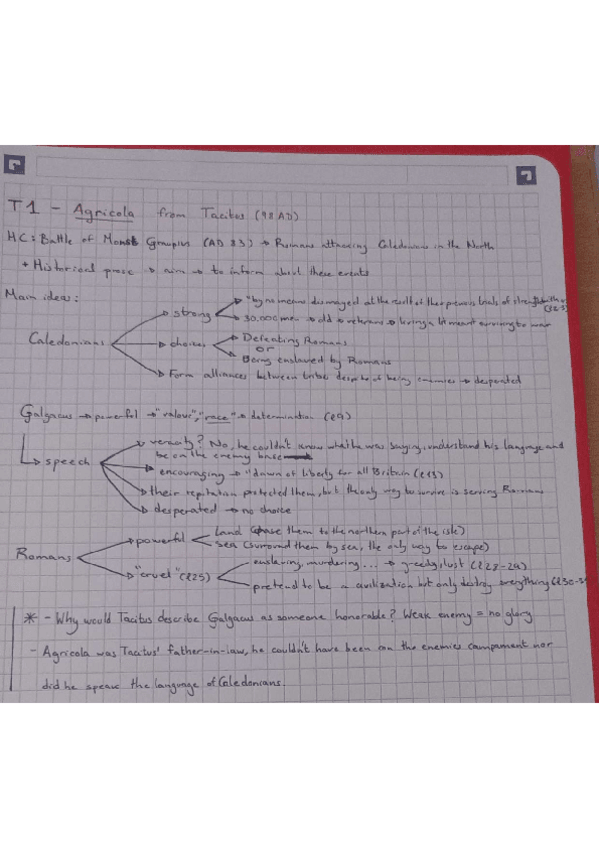 T1 - Agricola from Tacitus (98 AD)
HC: Battle of Mons Graupius (AD 83) → Romans attacking Caledonians in the North
+ Historical prose → aim → to inform about these events
Main ideas:
Caledonians
→ strong
→ "by no means damaged at the result of the previous trials of strength with
→ 30.000 men → old → veterans → living a bit meant surviving to war
→ choices
→ Defeating Romans
or
→ Being enslaved by Romans
→ Form alliances between tribes despite of being enemies → desperated
Galgacus → powerful → "valour", "race" → determination (l9)
→ speech
→ veracity? No, he couldn't know what he was saying, understand his language and
be on the enemy base
→ encouraging → "dawn of liberty for all Britain (l13)
→ their reputation protected them, but the only way to survive is serving Romans
→ desperated → no choice
Romans
→ powerful
land (chase them to the northern part of the isle)
sea (surround them by sea, the only way to escape)
→ "cruel" (l25)
enslaving, murdering... → greedy, lust (l28-29)
pretend to be a civilization but only destroy everything (l30-
* - Why would Tacitus describe Galgacus as someone honorable? Weak enemy = no glory
- Agricola was Tacitus' father-in-law, he couldn't have been on the enemies campament nor
did he speak the language of Caledonians.